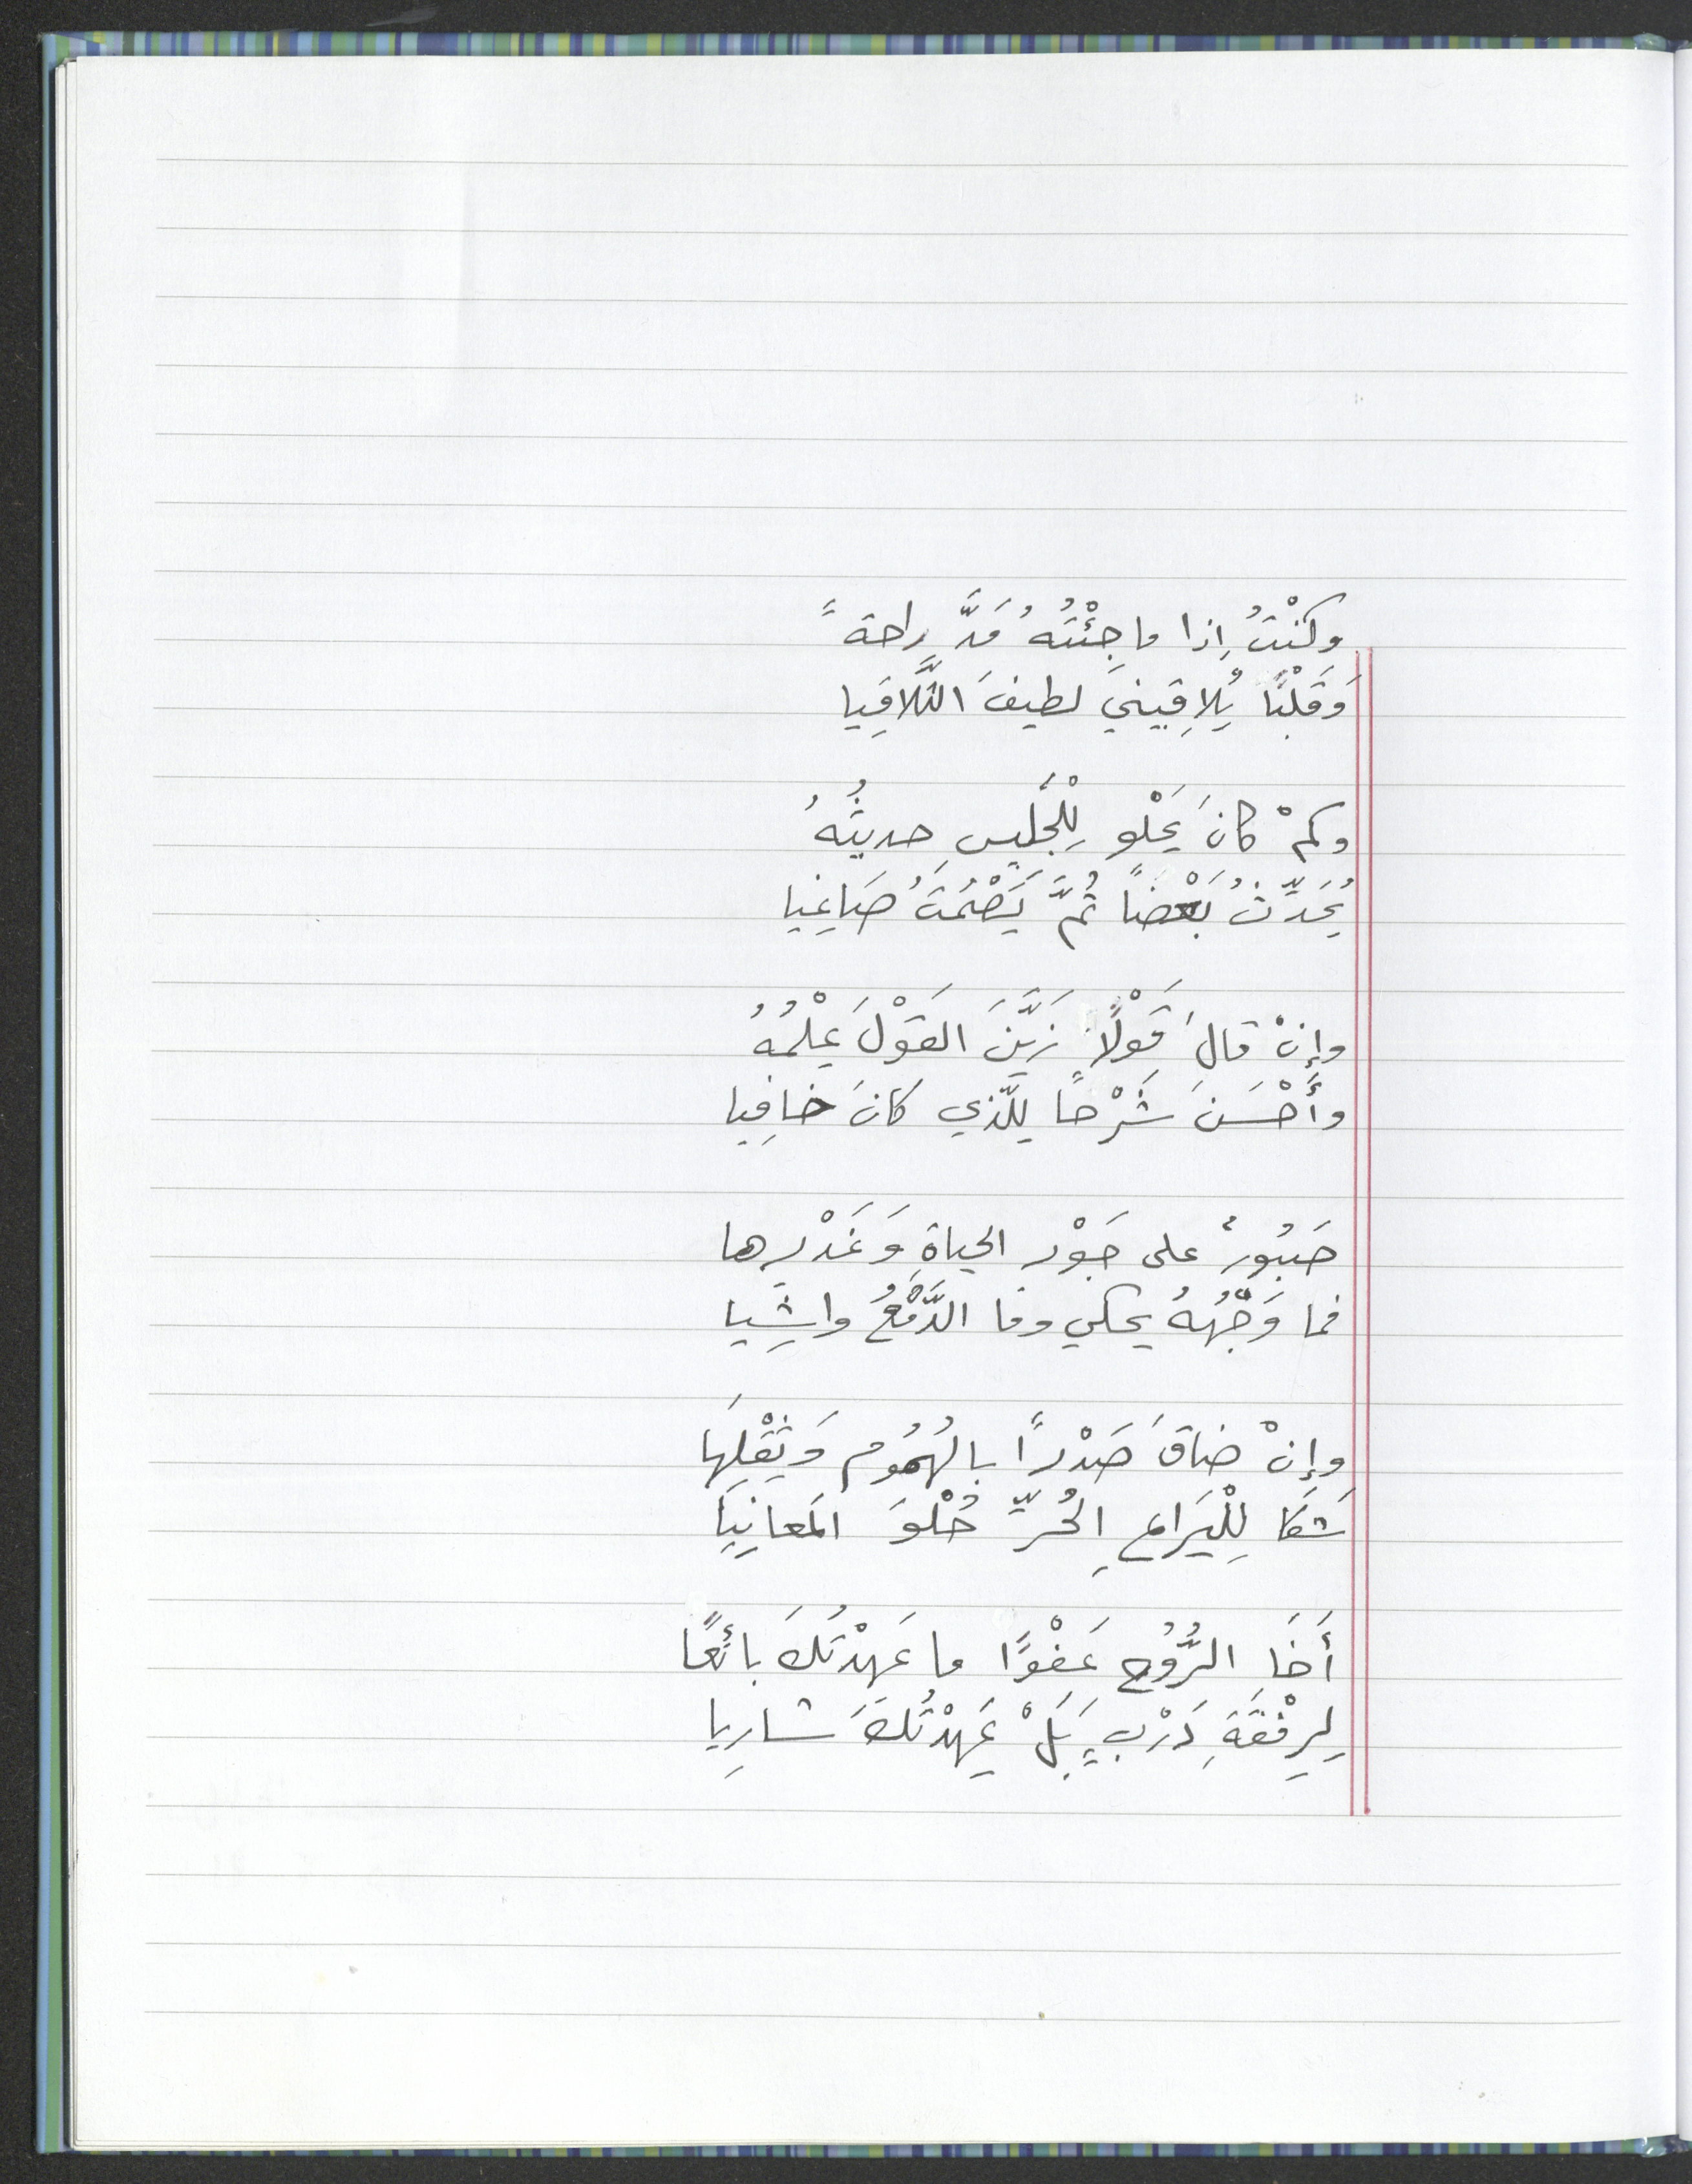 وكُنْتُ إذا ما جِئْتُهُ مَدَّ راحةً
وَقَلْبًا يُلاقِيني لطيفَ التَّلاقِيا
وكمْ كانَ يَحْلو لِلْجَليسِ حديثُهُ
يُحَدِّثُ بَعْضاً ثُمَّ يَصْمُتُ صَاغِيا
وإنْ قالَ قَوْلًا زَيَّنَ القَوْلَ عِلْمُهُ
وأَحْسَنَ شَرْحاً لِلّذي كانَ خافِيا
صَبُورٌ على جَوْرِ الحياةِ وَغَدْرِها
فما وَجْهُهُ يحكي وما الدَّمْعُ واشِيا
وإنْ ضاقَ صَدْراً بالهُمُومِ وَثِقْلِهَا
شَكَا لِلْيَراعِ الحُرِّ حُلْوَ المَعانِيَا
أَخَا الرُّوحِ عَفْوًا ما عَهِدْتُكَ بائعًا
لِرِفْقَةِ دَرْبٍ بَلْ عَهِدْتُكَ شارِيا